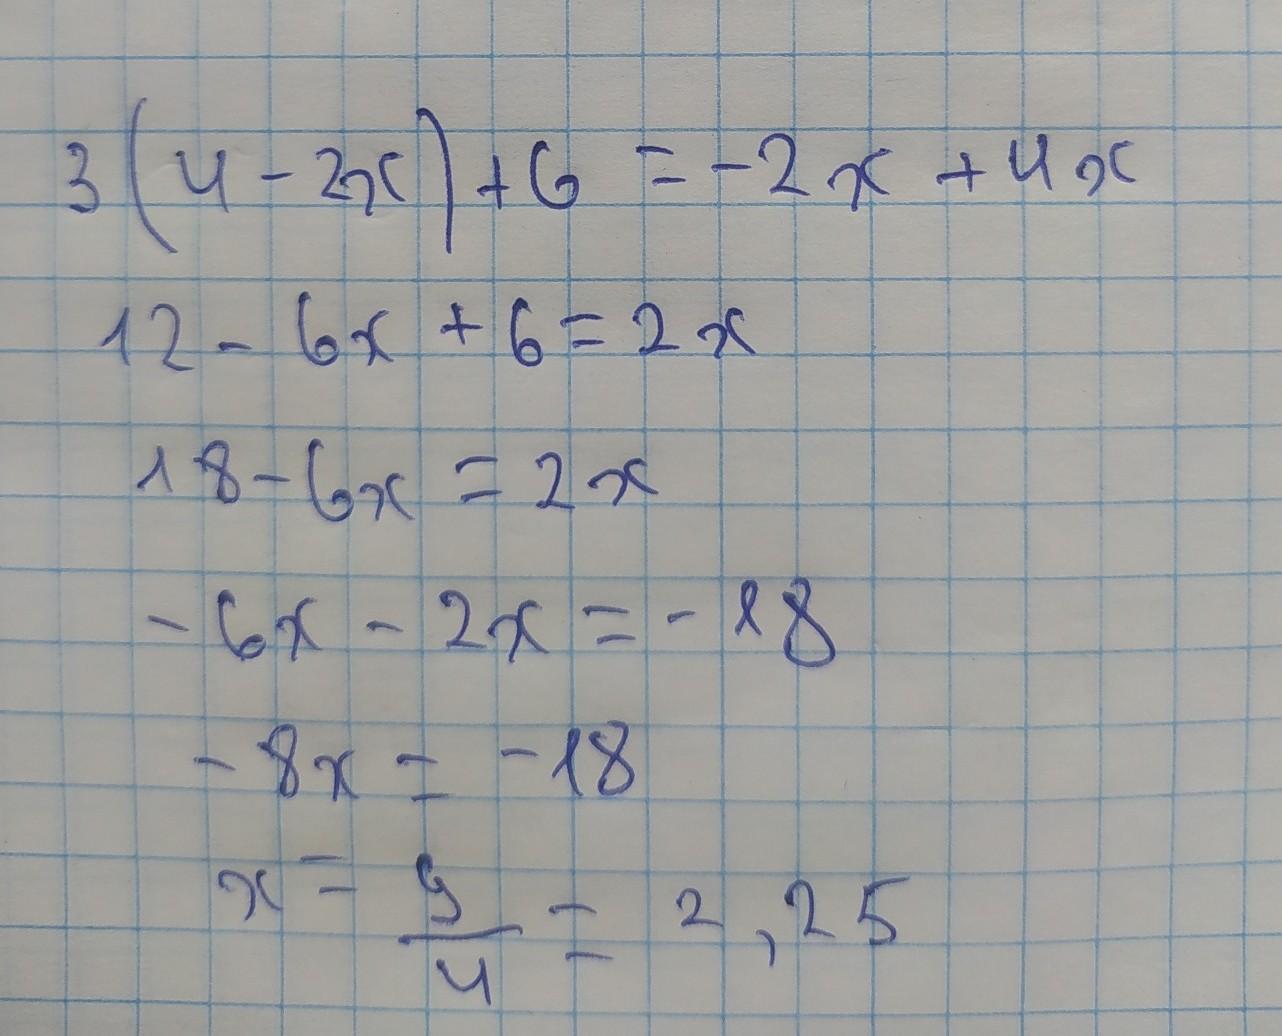 3(4-2x)+6=-2x+4x
12-6x+6=2x
18-6x=2x
-6x-2x=-18
-8x=-18
x=9/4=2,25